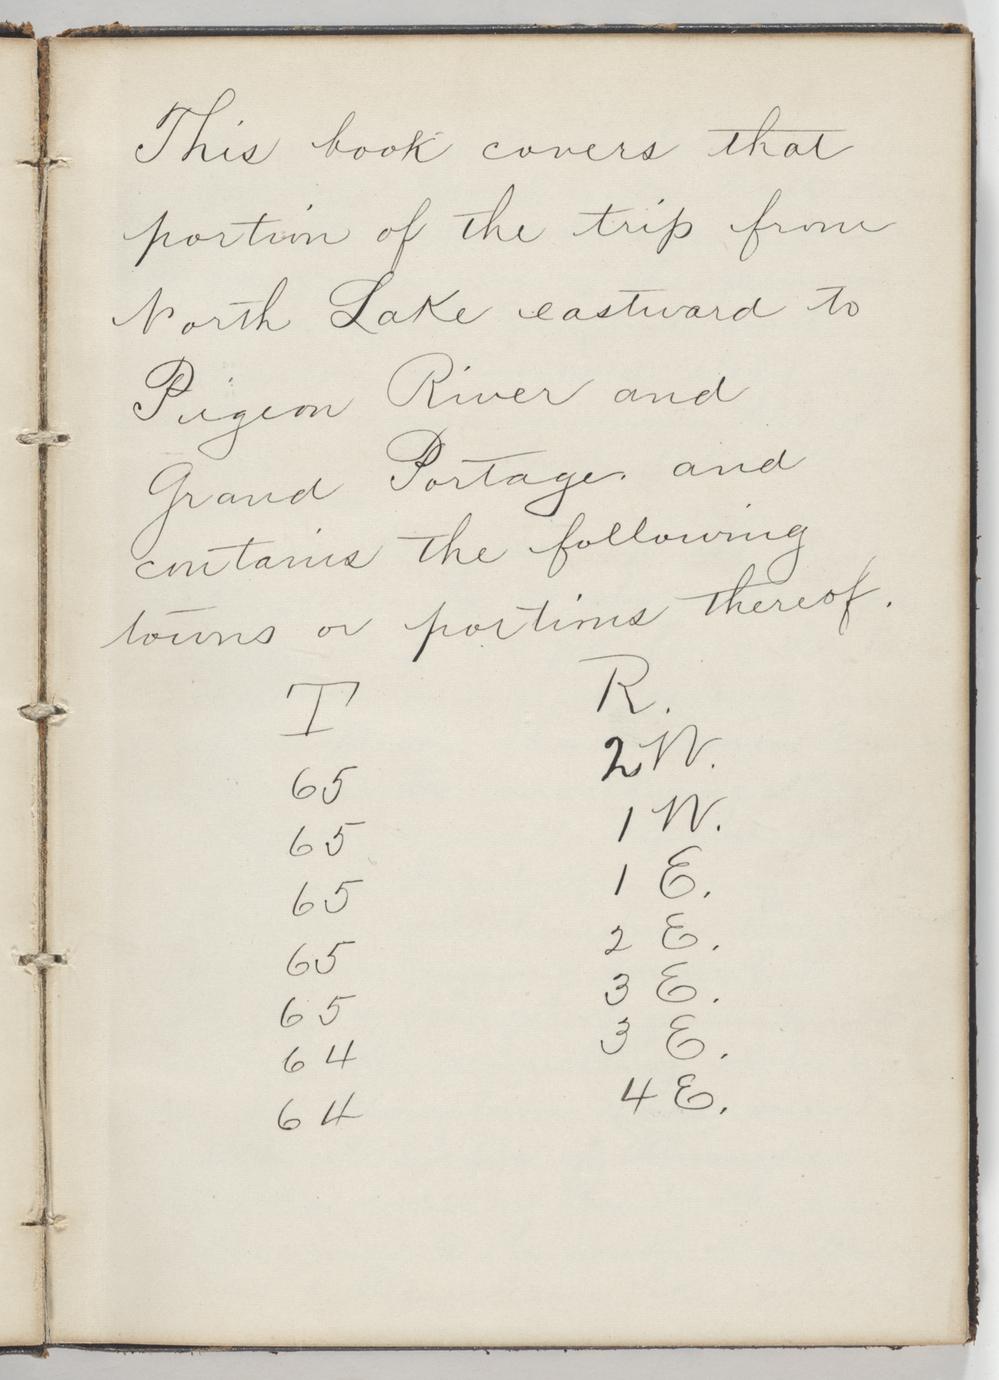 This book covers that
portion of the trip from
North Lake eastward to
Pigeon River and
Grand Portage. and
contains the following
towns or portions thereof.
T R.
65 2 W.
65 1 W.
65 1 E.
65 2 E.
65 3 E.
64 3 E.
64 4 E.